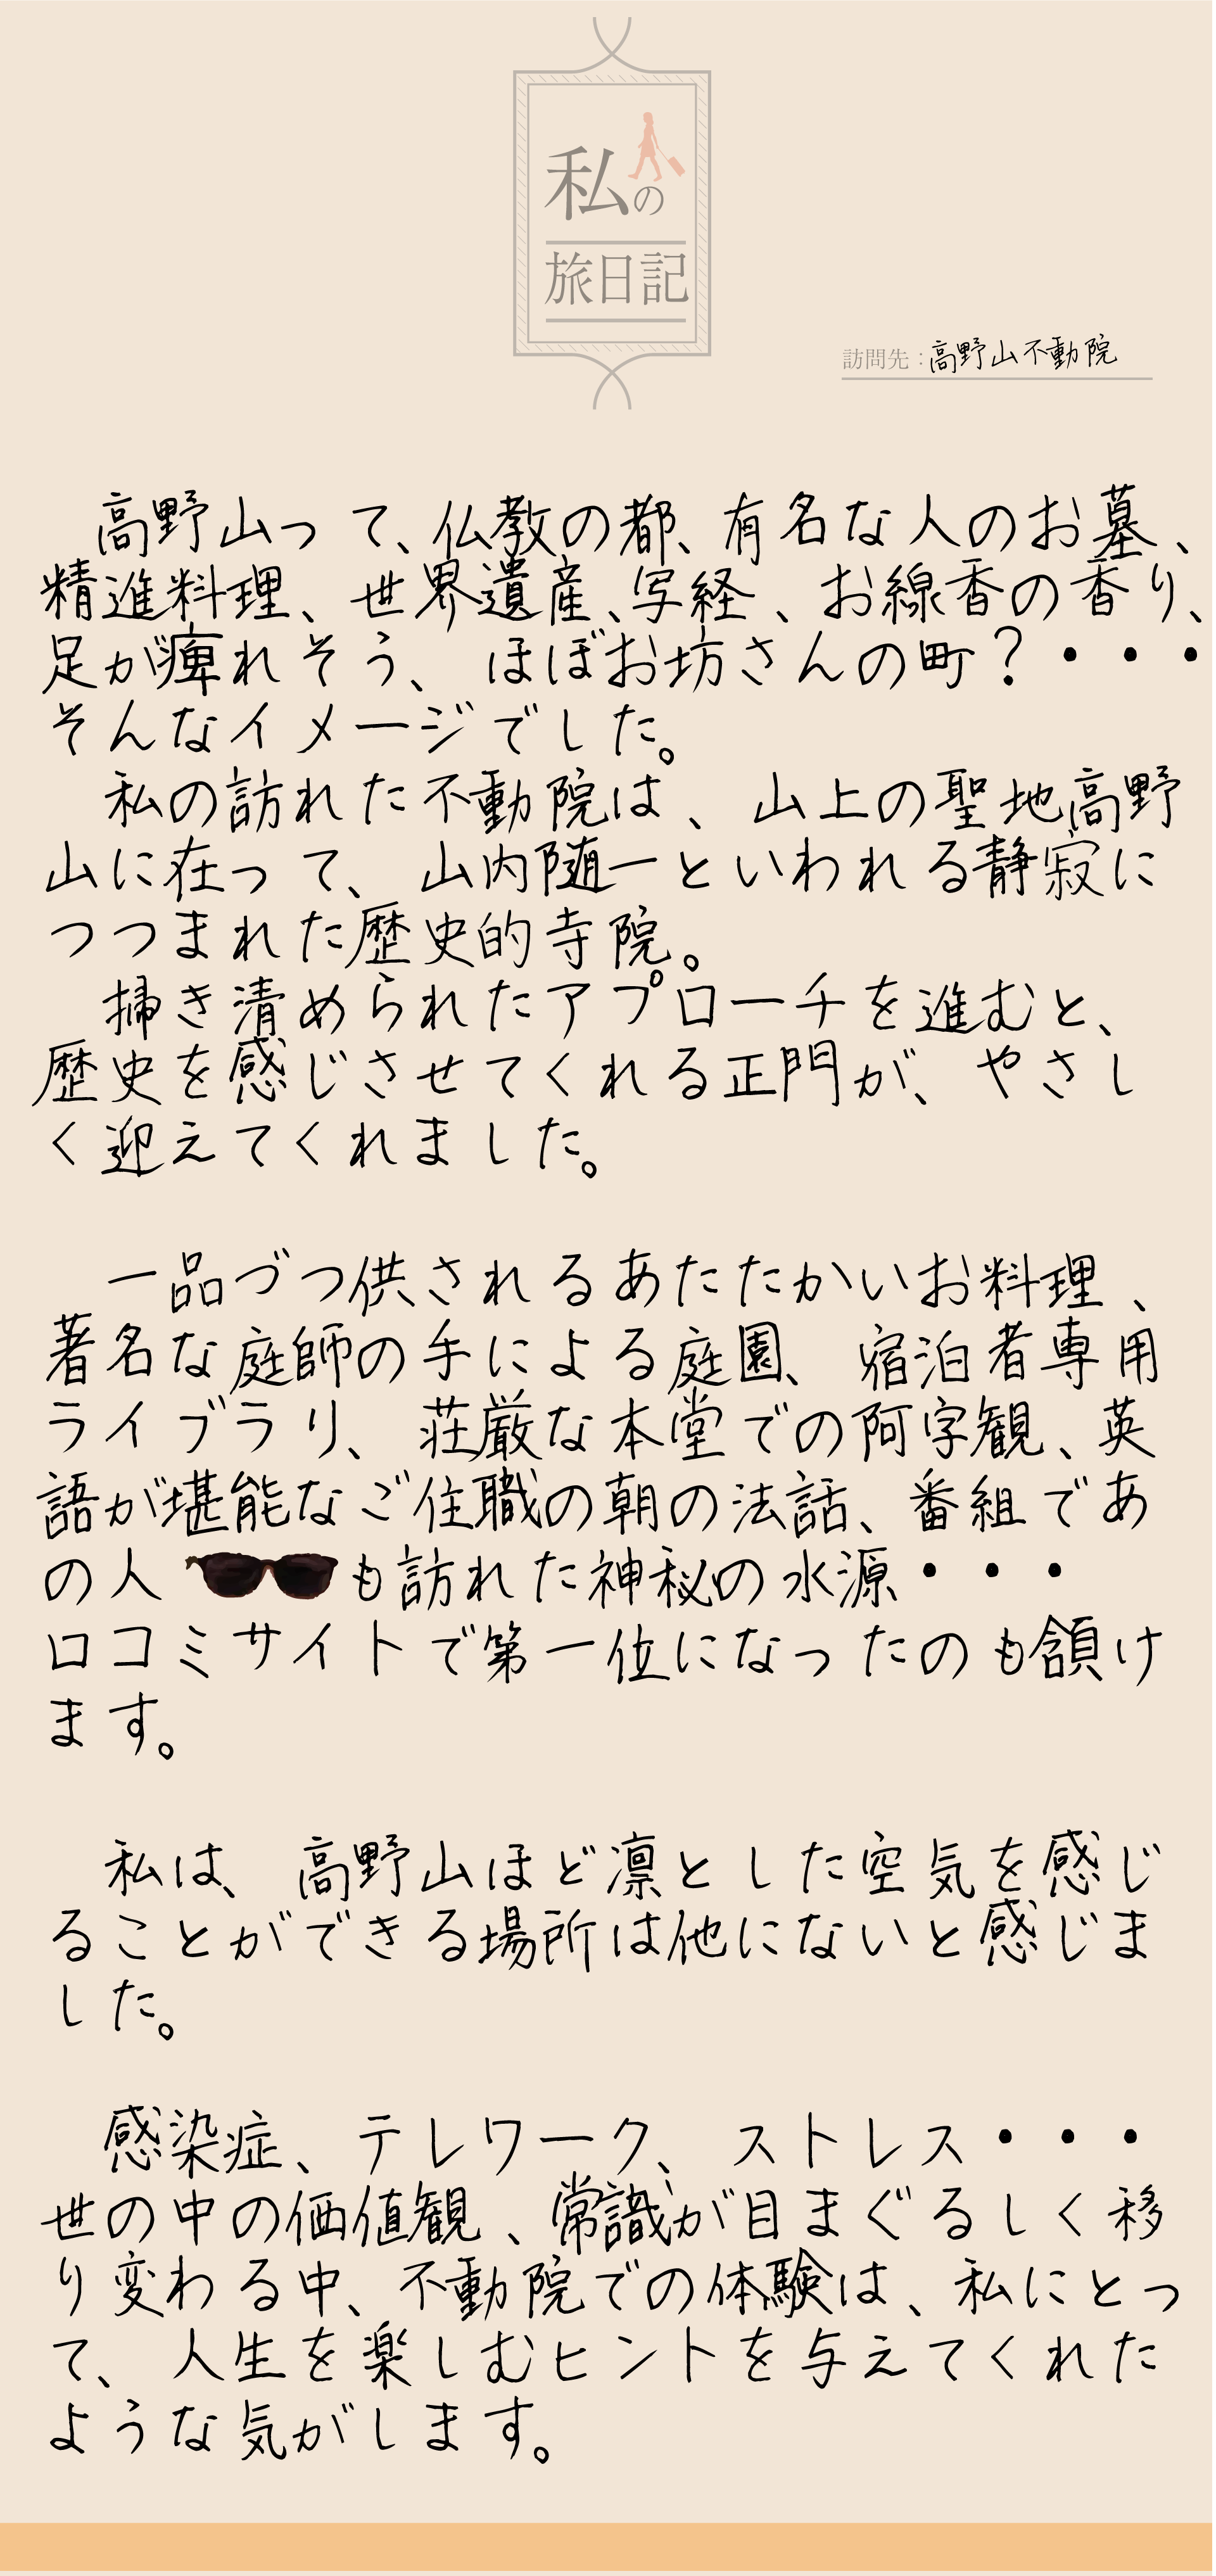 私の
旅日記
訪問先：高野山不動院
高野山って、仏教の都、有名な人のお墓、
精進料理、世界遺産、写経、お線香の香り、
足が痺れそう、ほぼお坊さんの町？・・・
そんなイメージでした。
私の訪れた不動院は、山上の聖地高野
山に在って、山内随一といわれる静寂に
つつまれた歴史的寺院。
掃き清められたアプローチを進むと、
歴史を感じさせてくれる正門が、やさし
く迎えてくれました。
一品づつ供されるあたたかいお料理、
著名な庭師の手による庭園、宿泊者専用
ライブラリ、荘厳な本堂での阿字観、英
語が堪能なご住職の朝の法話、番組であ
の人も訪れた神秘の水源・・・
口コミサイトで第一位になったのも頷け
ます。
私は、高野山ほど凛とした空気を感じ
ることができる場所は他にないと感じま
した。
感染症、テレワーク、ストレス・・・
世の中の価値観、常識が目まぐるしく移
り変わる中、不動院での体験は、私にとっ
て、人生を楽しむヒントを与えてくれた
ような気がします。